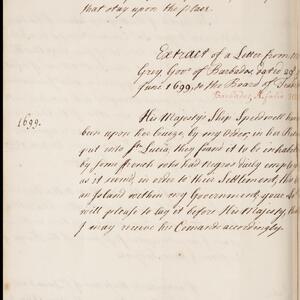 that stay upon the place.
Extract of a Letter from
Grey Govr. of Barbados, dated 29
June 1699, to the Board of Trade
Barbados,
1699.
His Majesty's Ship Speedwell
been upon her Cruize, by my Order, in her
put into St. Lucia, they found it to be inhabi
by some French who had Negros
as it seems, in order to their Settlement,
an Island within my Government, your
will please to lay it before His Majesty,
I may receive his Comands accordingly.